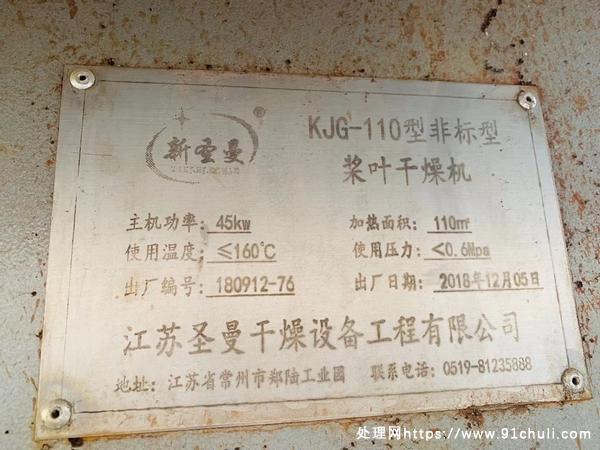 新圣曼®
KJG-110型非标型
桨叶干燥机
主机功率: 45kw 加热面积: 110m²
使用温度: ≤160℃ 使用压力: ≤0.6Mpa
出厂编号: 180912-76 出厂日期: 2018年12月05日
江苏圣曼干燥设备工程有限公司
地址: 江苏省常州市郑陆工业园 联系电话: 0519-81235888
处理网https://www.91chuli.com